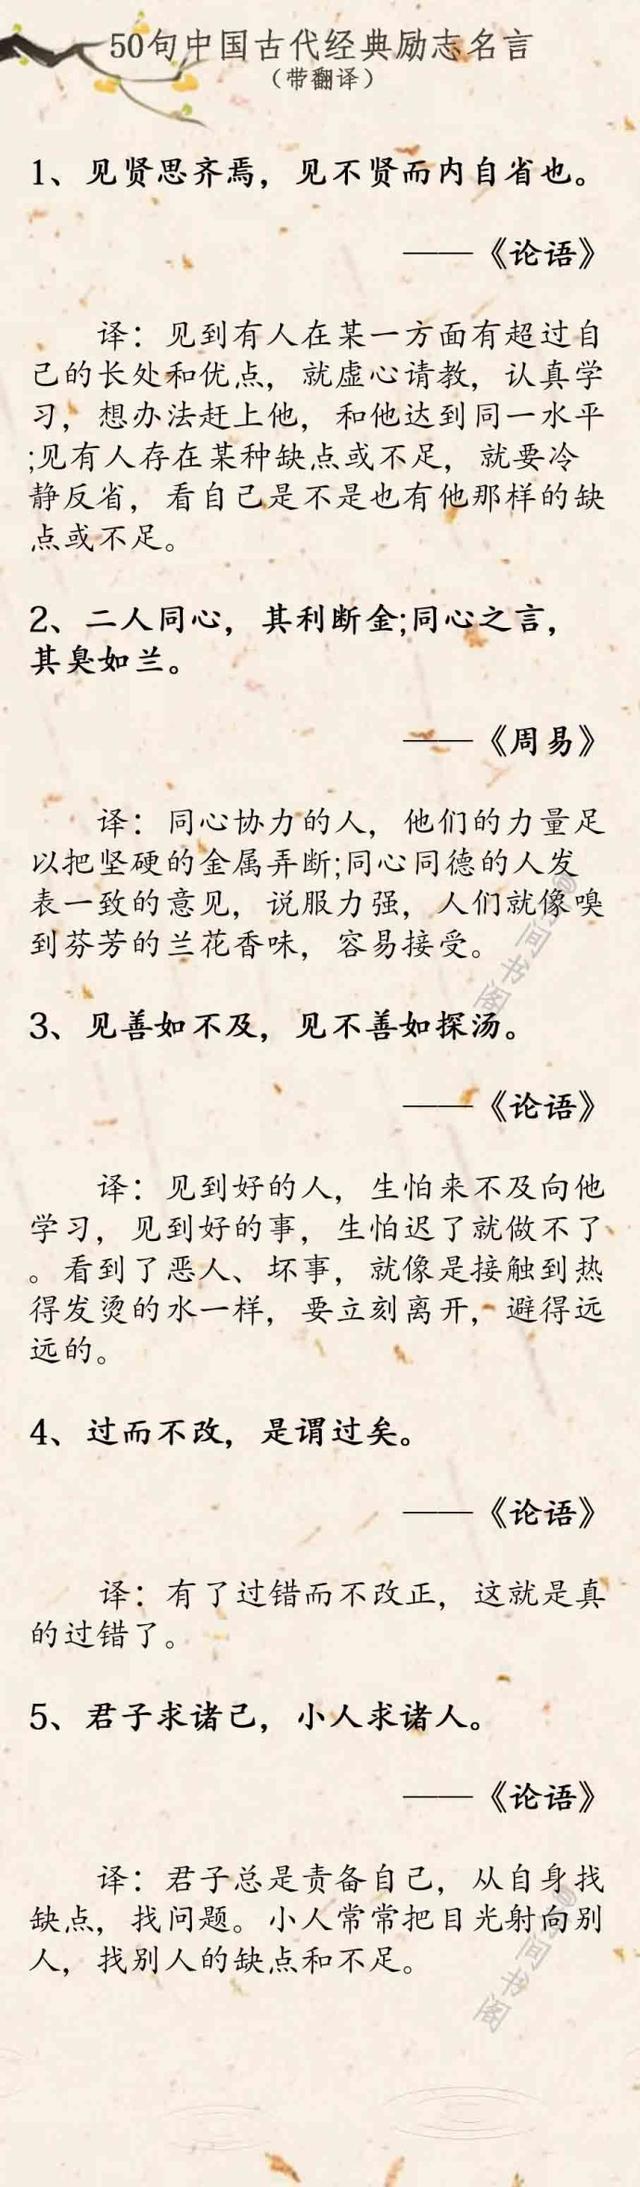 50句中国古代经典励志名言
（带翻译）
1、见贤思齐焉，见不贤而内自省也。
——《论语》
译：见到有人在某一方面有超过自
己的长处和优点，就虚心请教，认真学
习，想办法赶上他，和他达到同一水平
;见有人存在某种缺点或不足，就要冷
静反省，看自己是不是也有他那样的缺
点或不足。
2、二人同心，其利断金;同心之言，
其臭如兰。
——《周易》
译：同心协力的人，他们的力量足
以把坚硬的金属弄断;同心同德的人发
表一致的意见，说服力强，人们就像嗅
到芬芳的兰花香味，容易接受。
3、见善如不及，见不善如探汤。
——《论语》
译：见到好的人，生怕来不及向他
学习，见到好的事，生怕迟了就做不了
。看到了恶人、坏事，就像是接触到热
得发烫的水一样，要立刻离开，避得远
远的。
4、过而不改，是谓过矣。
——《论语》
译：有了过错而不改正，这就是真
的过错了。
5、君子求诸己，小人求诸人。
——《论语》
译：君子总是责备自己，从自身找
缺点，找问题。小人常常把目光射向别
人，找别人的缺点和不足。